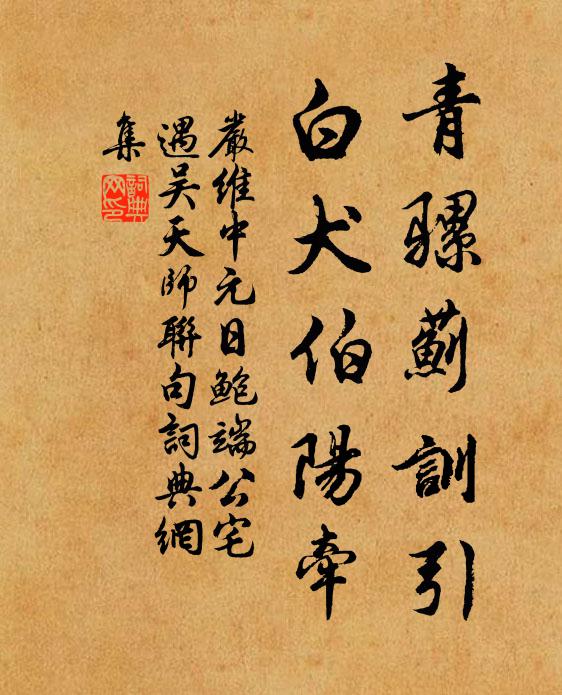 青騾薊訓引
白犬伯陽牽
嚴維中元日鮑端公宅
遇吴天師聯句詞典網
集
詞典
网印